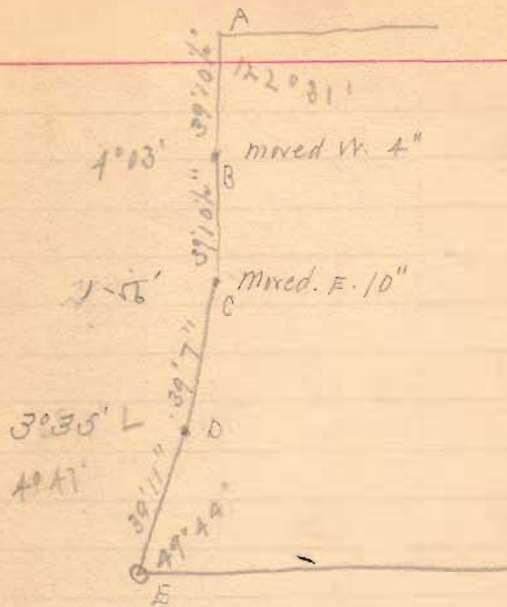 A
39'10½"
122°31'
4°03' B moved W. 4"
39'10½"
C Moved. E. 10"
39'7"
3°35' L D
4°47'
39'11"
49°44'
E